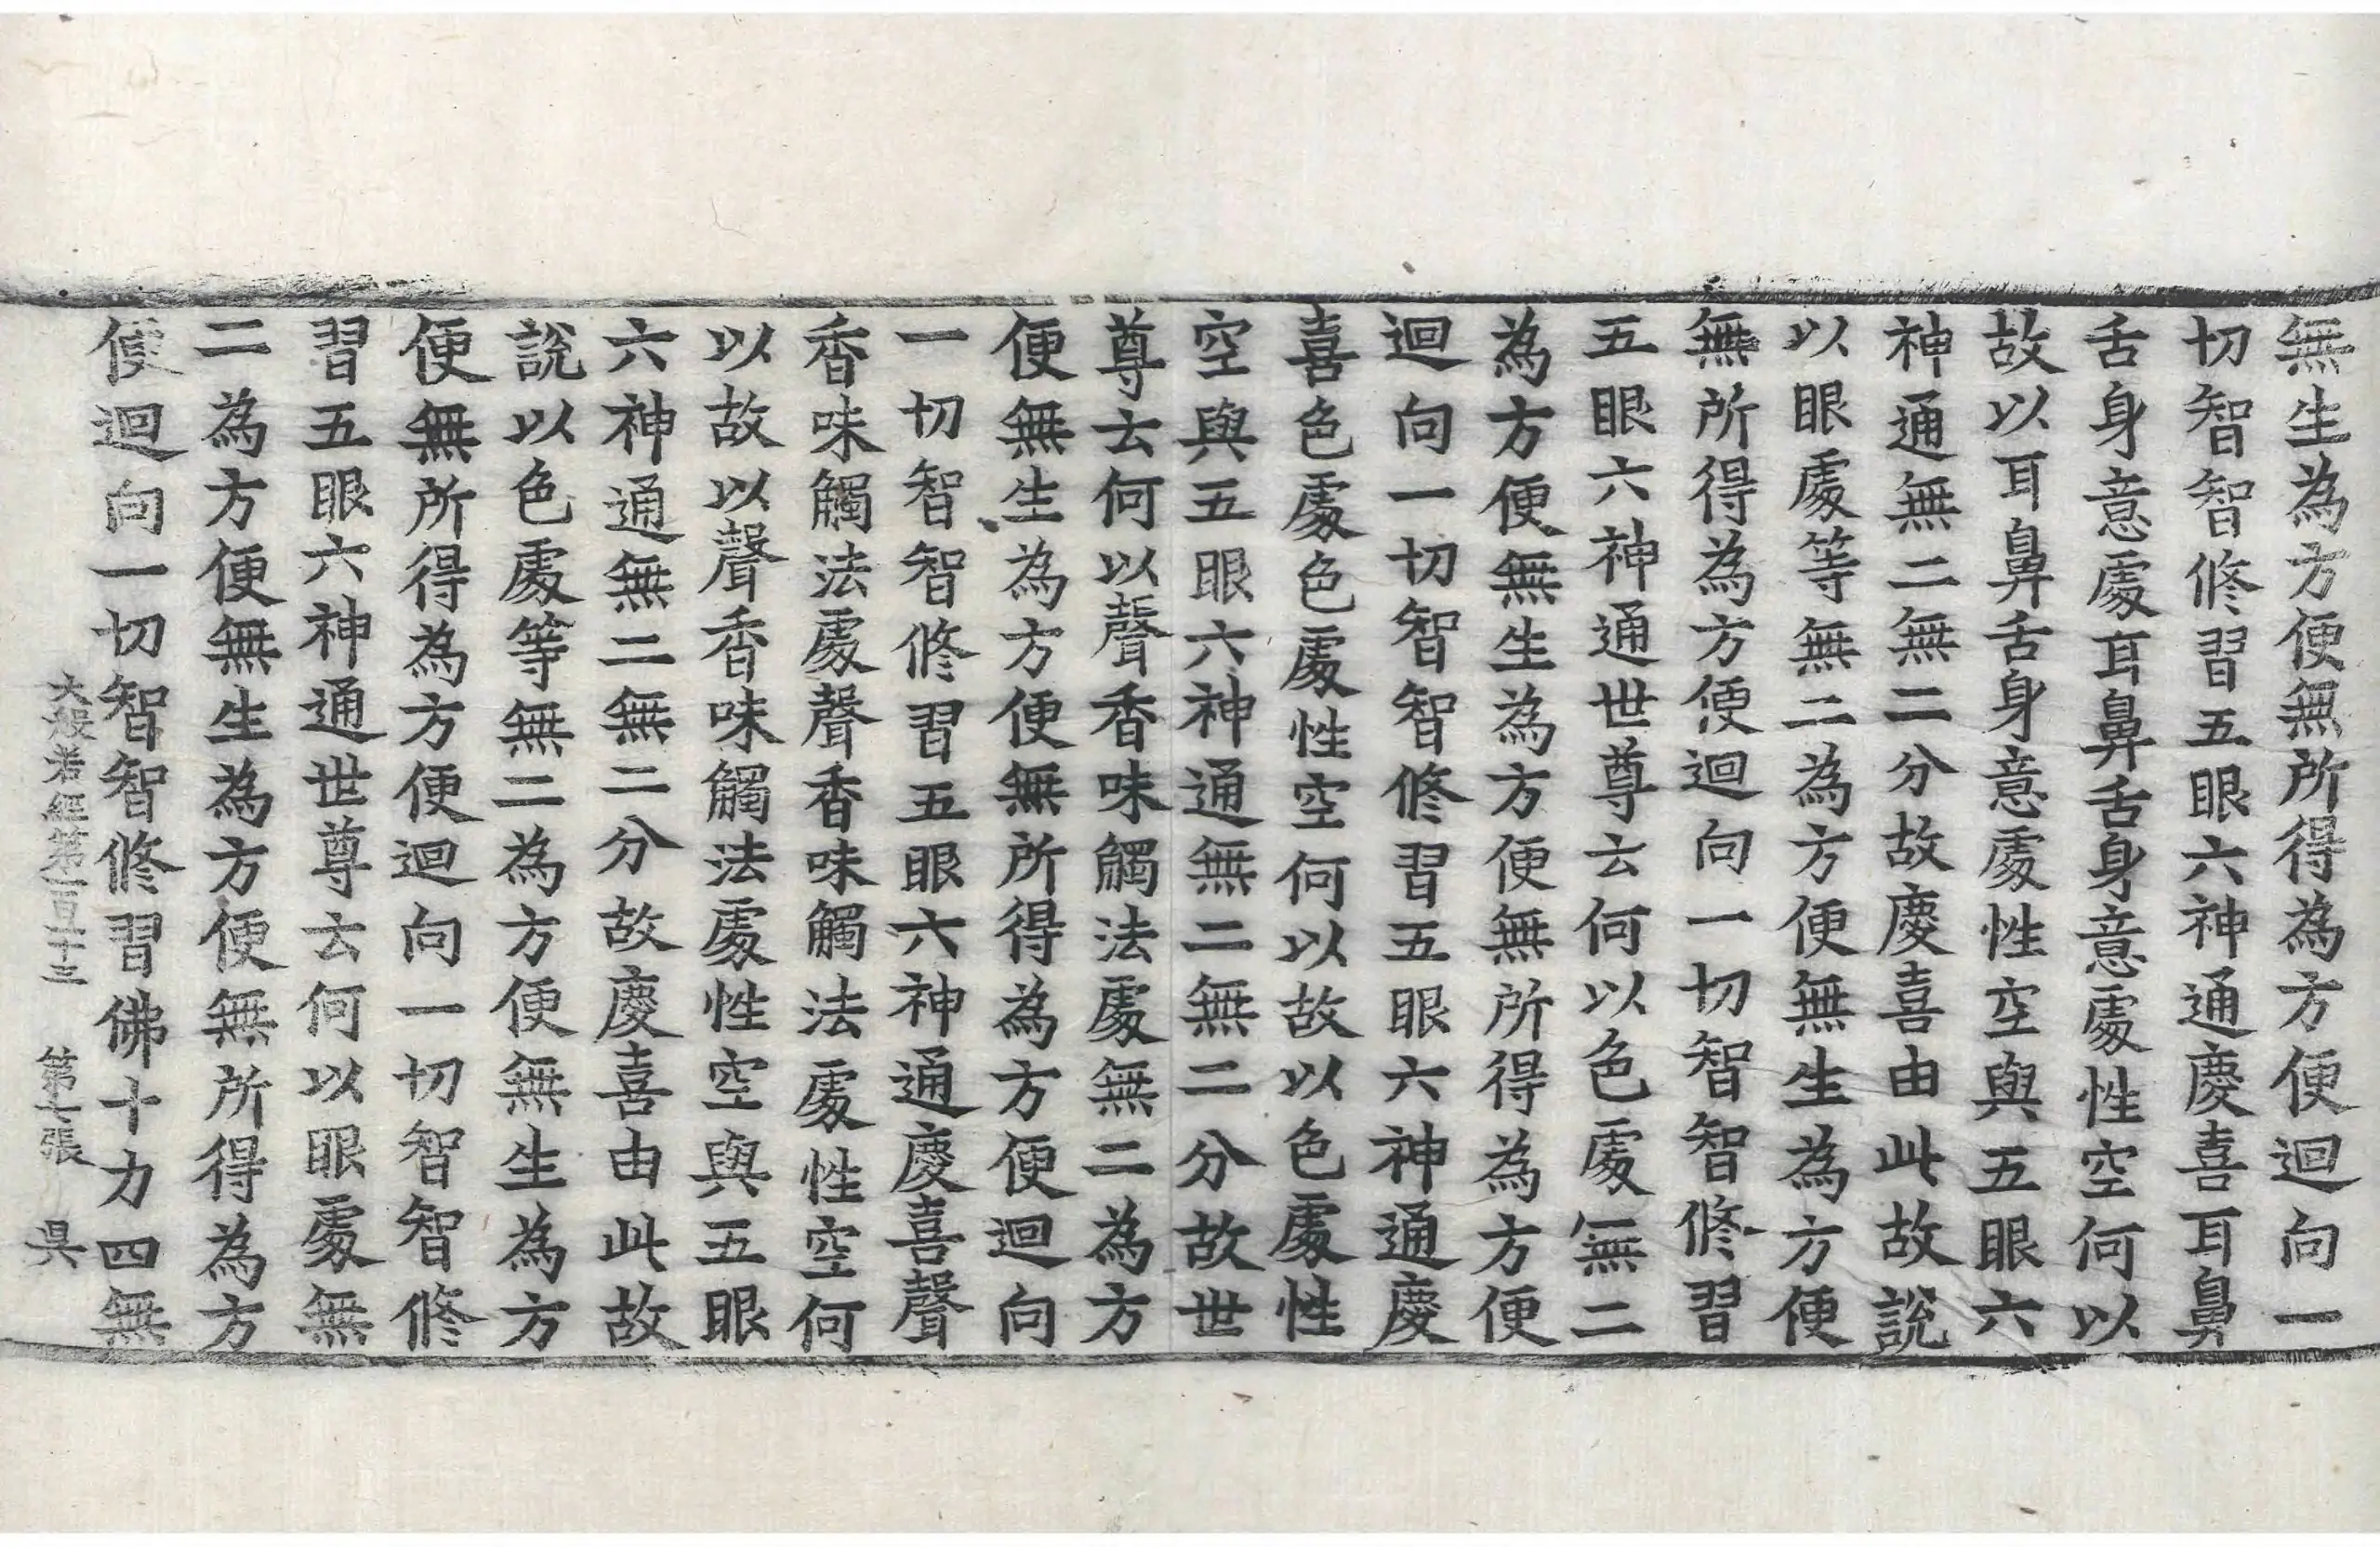 無生為方便無所得為方便迴向一
切智智修習五眼六神通慶喜耳鼻
舌身意處耳鼻舌身意處性空何以
故以耳鼻舌身意處性空與五眼六
神通無二無二分故慶喜由此故說
以眼處等無二為方便無生為方便
無所得為方便迴向一切智智修習
五眼六神通世尊云何以色處無二
為方便無生為方便無所得為方便
迴向一切智智修習五眼六神通慶
喜色處色處性空何以故以色處性
空與五眼六神通無二無二分故世
尊云何以聲香味觸法處無二為方
便無生為方便無所得為方便迴向
一切智智修習五眼六神通慶喜聲
香味觸法處聲香味觸法處性空何
以故以聲香味觸法處性空與五眼
六神通無二無二分故慶喜由此故
說以色處等無二為方便無生為方
便無所得為方便迴向一切智智修
習五眼六神通世尊云何以眼處無
二為方便無生為方便無所得為方
便迴向一切智智修習佛十力四無
大般若經第一百一十三 第七張 吳